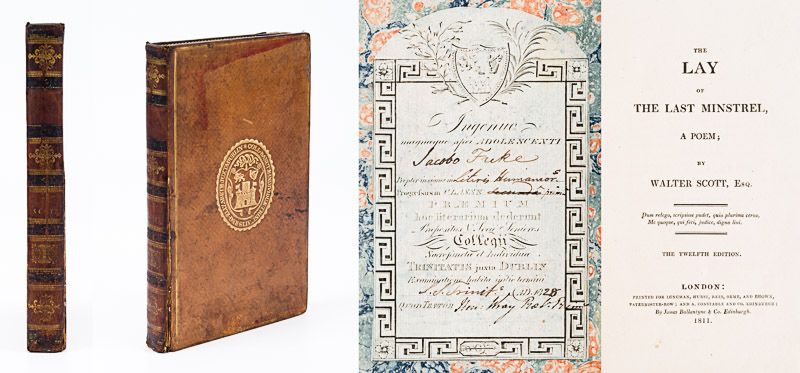 SCOTT
Ingenuo
magnæque spei ADOLESCENTI
Jacobo
Propter insignes in Literis Humanior.
Progressus in CLASSE prima
PRÆMIUM
hoc literarium dederunt
Præpositus & Socij Seniores
Collegii
Sacrosanctæ et Individuæ
TRINITATIS juxta DUBLIN
Examinatione habita initio termini
S.S. Trinit. A.D. 1828
QUOD TESTOR Hen. Wray
THE
LAY
OF
THE LAST MINSTREL,
A POEM;
BY
WALTER SCOTT, ESQ.
Dum relego, scripsisse pudet, quia plurima cerno,
Me quoque, qui feci, judice, digna lini.
THE TWELFTH EDITION.
LONDON:
PRINTED FOR LONGMAN, HURST, REES, ORME, AND BROWN,
PATERNOSTER-ROW; AND A. CONSTABLE AND CO. EDINBURGH;
By James Ballantyne & Co. Edinburgh.
1811.